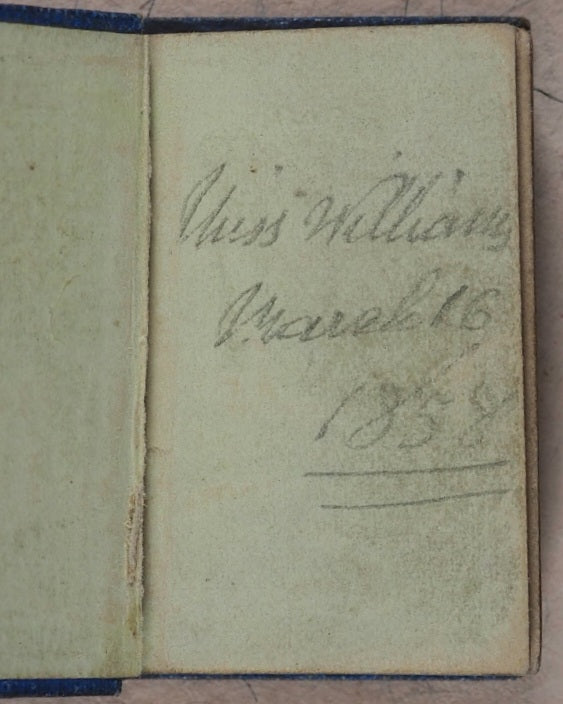 Miss Williams
March 16
1858